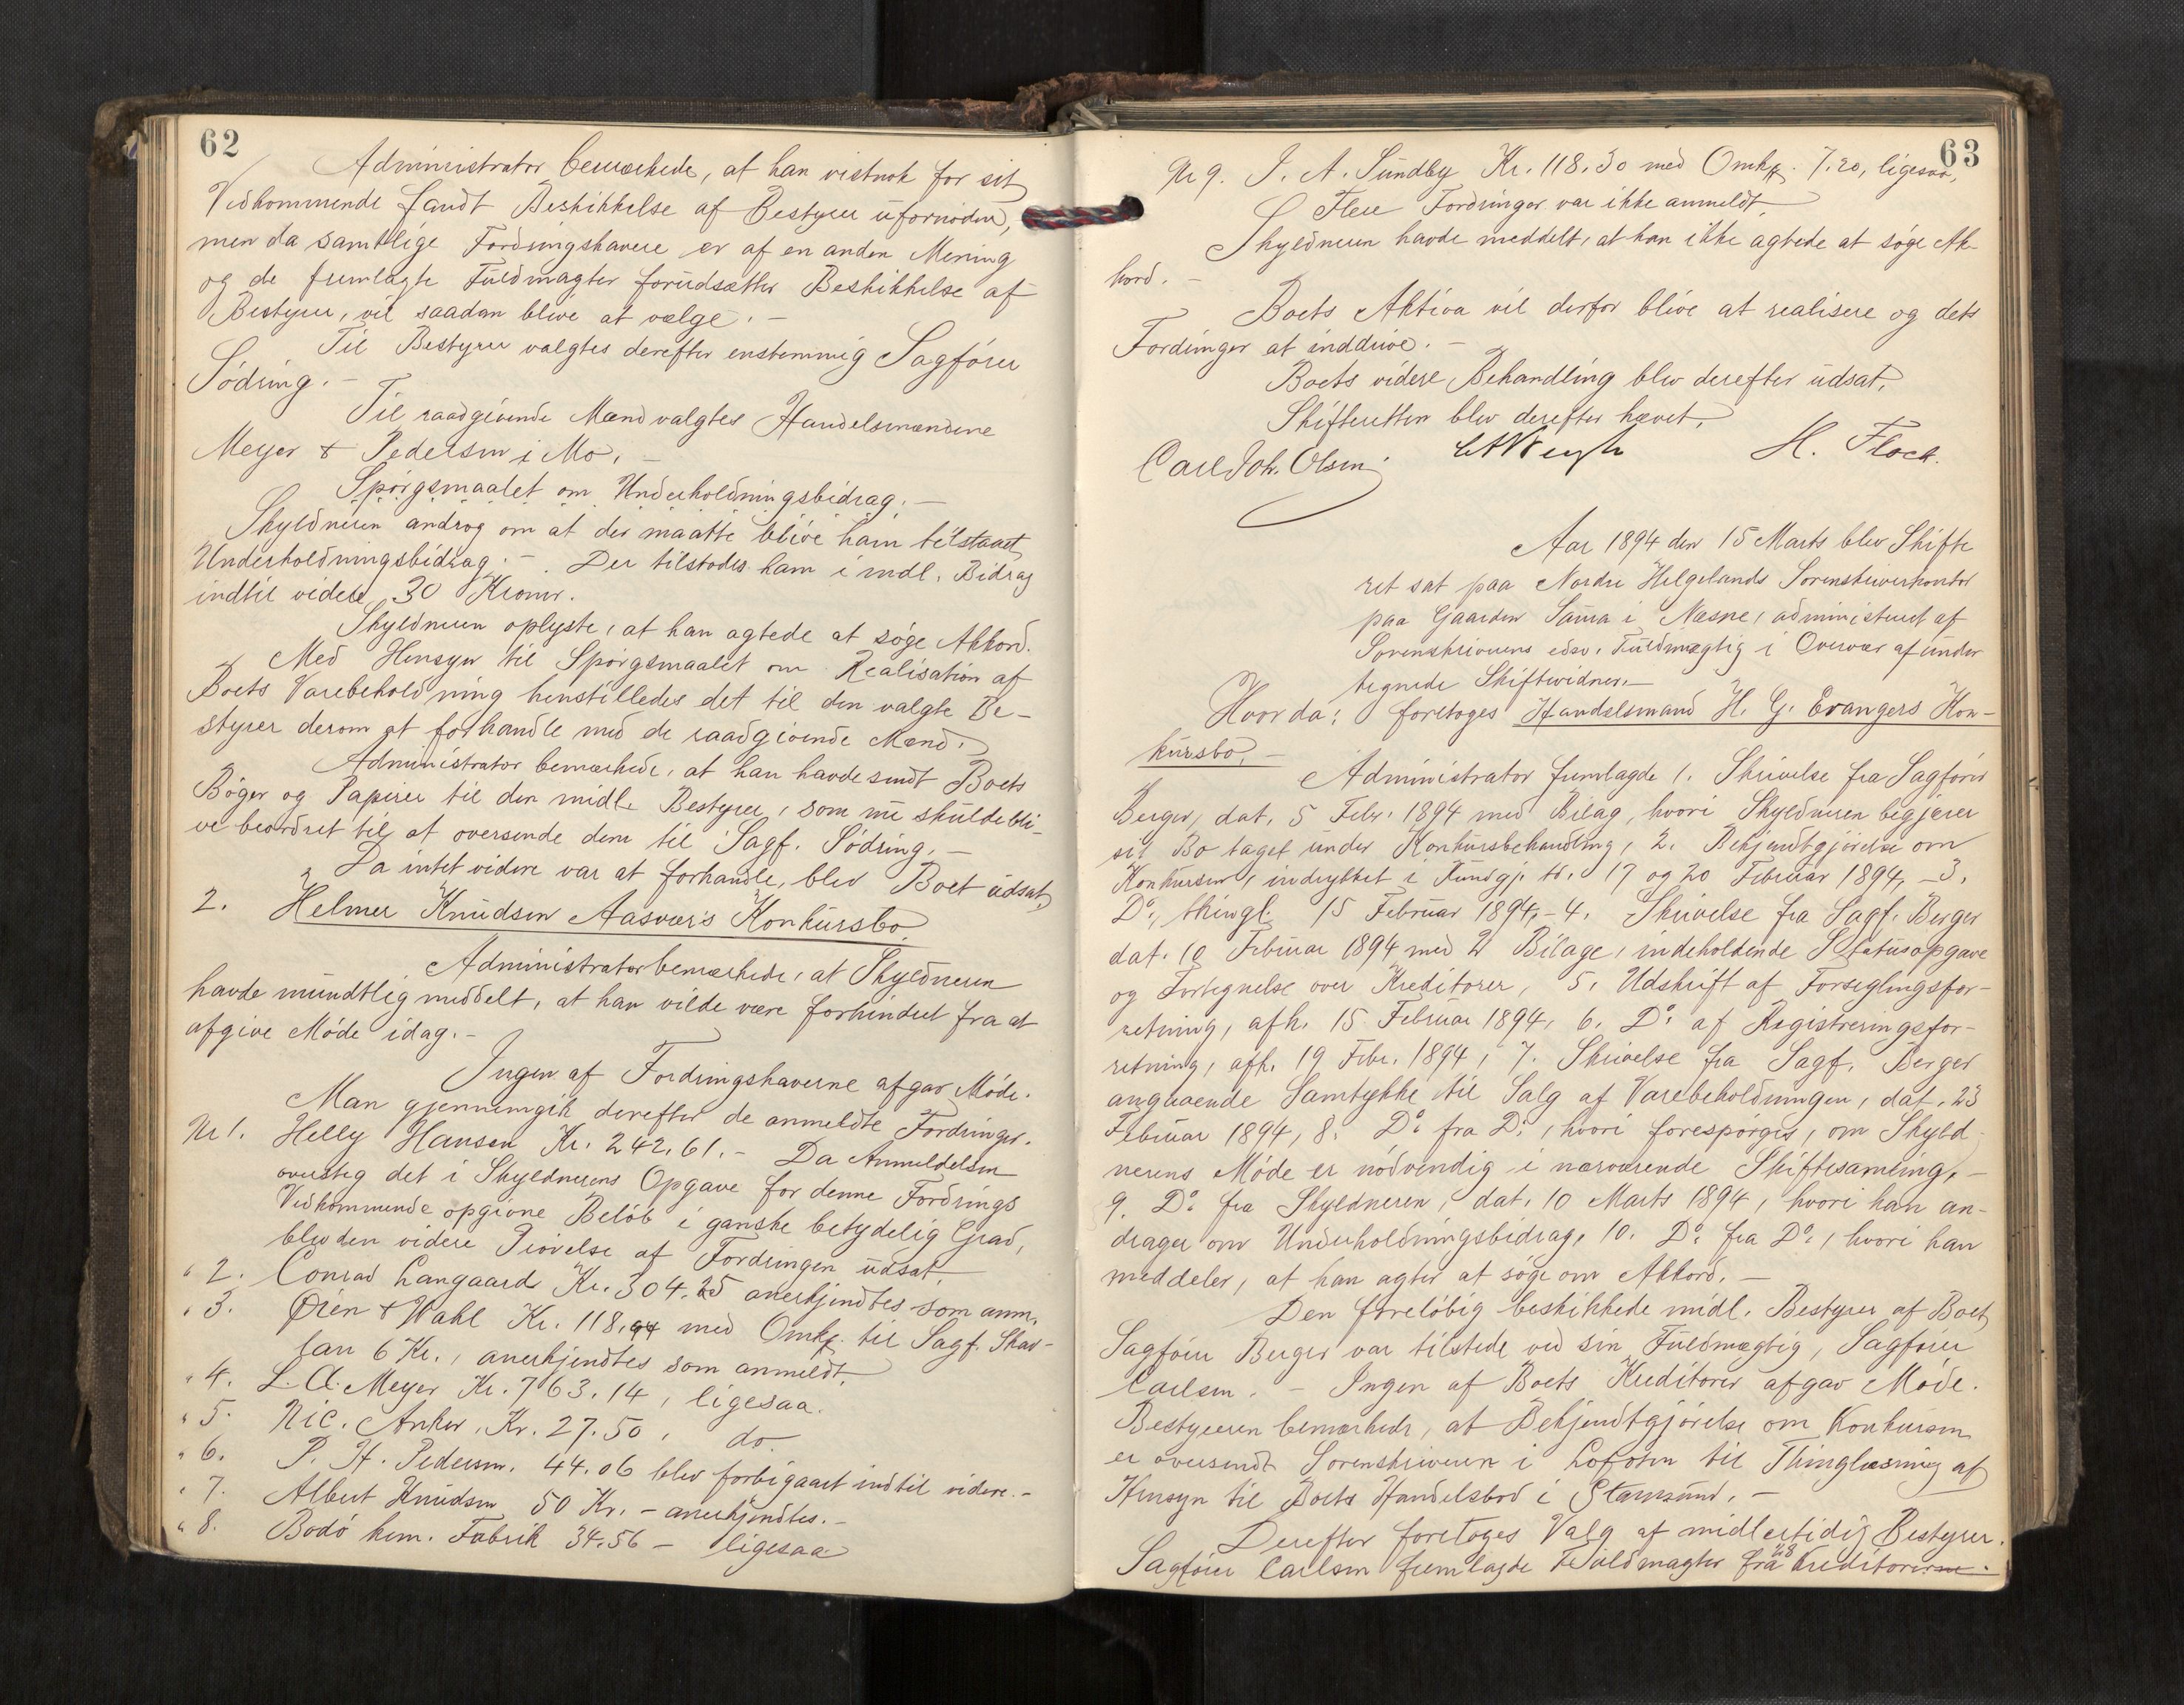 62
Administrator bemærkede, at han vistnok for sit
Vedkommende fandt Beskikkelse af Bestyrer ufornöden,
men da samtlige Fordringshavere er af en anden Mening
og de fremlagte Fuldmagter forudsætter Beskikkelse af
Bestyrer, vil saadan blive at vælge. -
Til Bestyrer valgtes derefter enstemmig Sagförer
Södring. -
Til raadgivende Mænd valgtes Handelsmændene
Meyer & Pedersen i Mo. -
Spörgsmaalet om Underholdningsbidrag. -
Skyldneren androg om at der maatte blive ham tilstaaet
Underholdningsbidrag. - Der tilstodes ham i mdl. Bidrag
indtil videre 30 Kroner.
Skyldneren oplyste, at han agtede at söge Akkord.
Med Hensyn til Spörgsmaalet om Realisation af
Boets Varebeholdning henstilledes det til den valgte Be-
styrer derom at forhandle med de raadgivende Mænd.
Administrator bemærkede, at han havde sendt Boets
Böger og Papirer til den midl. Bestyrer, som nu skulde bli-
ve beordret til at oversende dem til Sagf. Södring. -
Da intet videre var at forhandle, blev Boet udsat,
2. Helmer Knudsen Aasvær's Konkursbo.
Administrator bemærkede, at Skyldneren
havde mundtlig meddelt, at han vilde være forhindret fra at
afgive Möde idag. -
Ingen af Fordringshaverne afgav Möde.
Man gjennemgik derefter de anmeldte Fordringer.
Nr 1. Helly Hansen Kr. 242.61. - Da Anmeldelsen
oversteg det i Skyldnerens Opgave for denne Fordrings
Vedkommende opgivne Belöb i ganske betydelig Grad,
blev den videre Prövelse af Fordringen udsat.
" 2. Conrad Langaard Kr. 304.25 anerkjendtes som anm.
" 3. Örien & Wahl Kr. 118.94 med Omkg. til Sagf. Skav-
lan 6 Kr., anerkjendtes som anmeldt.
" 4. L. A. Meyer Kr. 763.14, ligesaa.
" 5. Nic. Anker, Kr. 27.50, do.
" 6. P. H. Pedersen. 44.06 blev forbigaaet indtil videre. -
" 7. Albert Knudsen 50 Kr. - anerkjendtes. -
" 8. Bodö kem. Fabrik 34.56 - ligesaa
63
Nr 9. I. A. Sundby Kr. 118.30 med Omkg. 7.20, ligesaa,
Flere Fordringer var ikke anmeldt,
Skyldneren havde meddelt, at han ikke agtede at söge Ak-
kord. -
Boets Aktiva vil derfor blive at realisere og dets
Fordringer at inddrive. -
Boets videre Behandling blev derefter udsat,
Skifteretten blev derefter hævet,
Carl Joh. Olsen H. Flock.
Aar 1894 den 15 Marts blev Skifte
ret sat paa Nordre Helgelands Sorenskriverkontor
paa Gaarden Saura i Næsne, administreret af
Sorenskriverens edsv. Fuldmægtig i Overvær af under
tegnede Skiftevidner. -
Hvor da: foretoges Handelsmand H. G. Evangers Kon-
kursbo. -
Administrator fremlagde 1. Skrivelse fra Sagförer
Berger, dat. 5 Febr. 1894 med Bilag, hvori Skyldneren begjærer
sit Bo taget under Konkursbehandling, 2. Bekjendtgjörelse om
Konkursen, indrykket i Kundgj. td. 17 og 20 Februar 1894, - 3.
Do., thinngl. 15 Februar 1894, - 4. Skrivelse fra Sagf. Berger
dat. 10 Februar 1894 med 2 Bilage, indeholdende Statusopgave
og Fortegnelse over Kreditorer, 5. Udskrift af Forseglingsfor-
retning, afh. 15 Februar 1894, 6. Do. af Registreringsfor-
retning, afh. 19 Febr. 1894, 7. Skrivelse fra Sagf. Berger
angaaende Samtykke til Salg af Varebeholdningen, dat. 23
Februar 1894, 8. Do. fra Do., hvori forespörges, om Skyld
nerens Möde er nödvendig i nærværende Skiftesamling, -
9. Do. fra Skyldneren, dat. 10 Marts 1894, hvori han an-
drager om Underholdningsbidrag, 10. Do. fra Do., hvori han
meddeler, at han agter at söge om Akkord. -
Den foreløbig beskikkede midl. Bestyrer af Boet
Sagförer Berger var tilstede ved sin Fuldmægtig, Sagförer
Carlsen. - Ingen af Boets Kreditorer afgav Möde.
Bestyreren bemærkede, at Bekjendtgjörelse om Konkursen
er oversendt Sorenskriveren i Lofoten til Thinglæsning af
Hensyn til Boets Handelsbod i Stamsund. -
Derefter foretoges Valg af midlertidig Bestyrer.
Sagförer Carlsen fremlagde Fuldmagter fra 28 Kreditorerne.